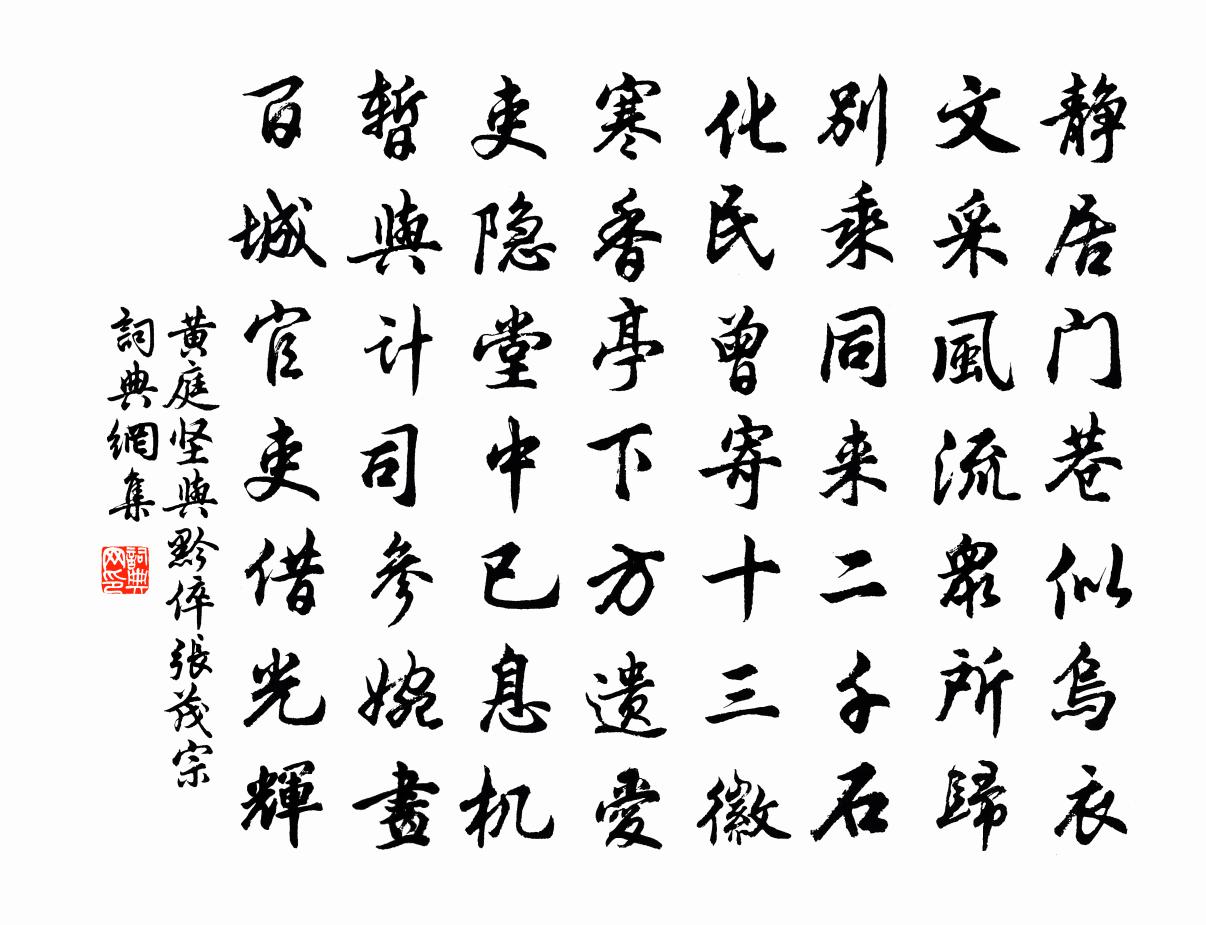 静居门巷似烏衣
文采風流衆所歸
别乘同来二千石
化民曾寄十三徽
寒香亭下方遗愛
吏隐堂中已息机
暫與计司參婉畫
百城官吏借光輝
黄庭坚與黔倅張茂宗
詞典網集
詞典网印